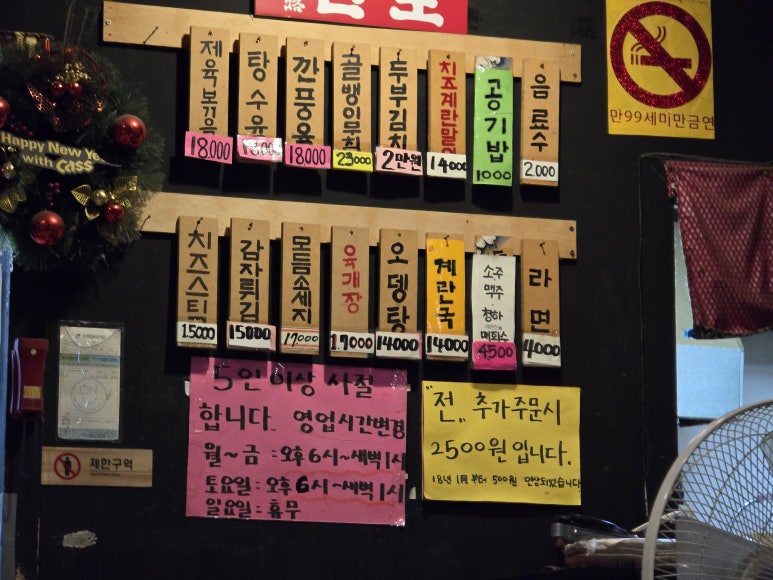 제육볶음
18.000
탕수육
18.000
깐풍육
18.000
골뱅이무침
23000
두부김치
2만원
치즈계란말이
14000
공기밥
1000
음료수
2.000
만99세미만금연
Happy New Ye
with Cass
치즈스틱
15000
감자튀김
15000
모듬소세지
17000
육개장
17000
오뎅탕
14000
계란국
14000
소주
맥주
청하
매화수
4500
라면
4000
ON
제한구역
5인 이상 사절
합니다. 영업시간변경
월~금 : 오후 6시~새벽1시
토요일 : 오후 6시~새벽1시
일요일 : 휴무
"전" 추가주문시
2500원 입니다.
18년 1月 부터 500원 인상되었습니다